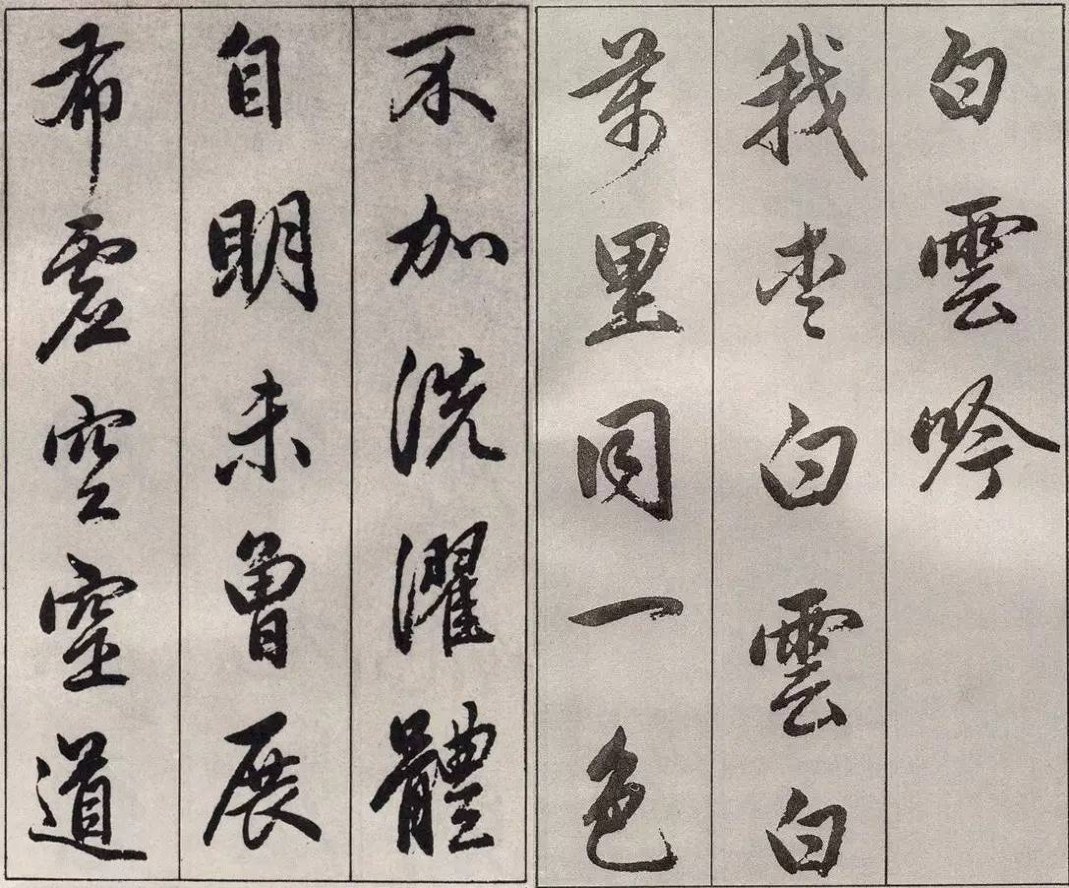 白雲吟
我白雲白
萬里同一色
不加洗濯體
自明未曾展
布虛空道